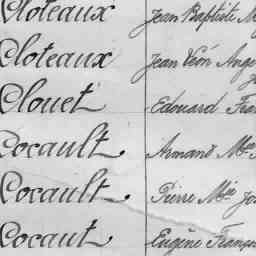 Cloteaux Jean Baptiste
Cloteaux Jean Léon Ange
Clouet Edouard Fran
Cocault. Armand Mie
Cocault. Pierre Mie Jo
Cocaut Eugène Franço